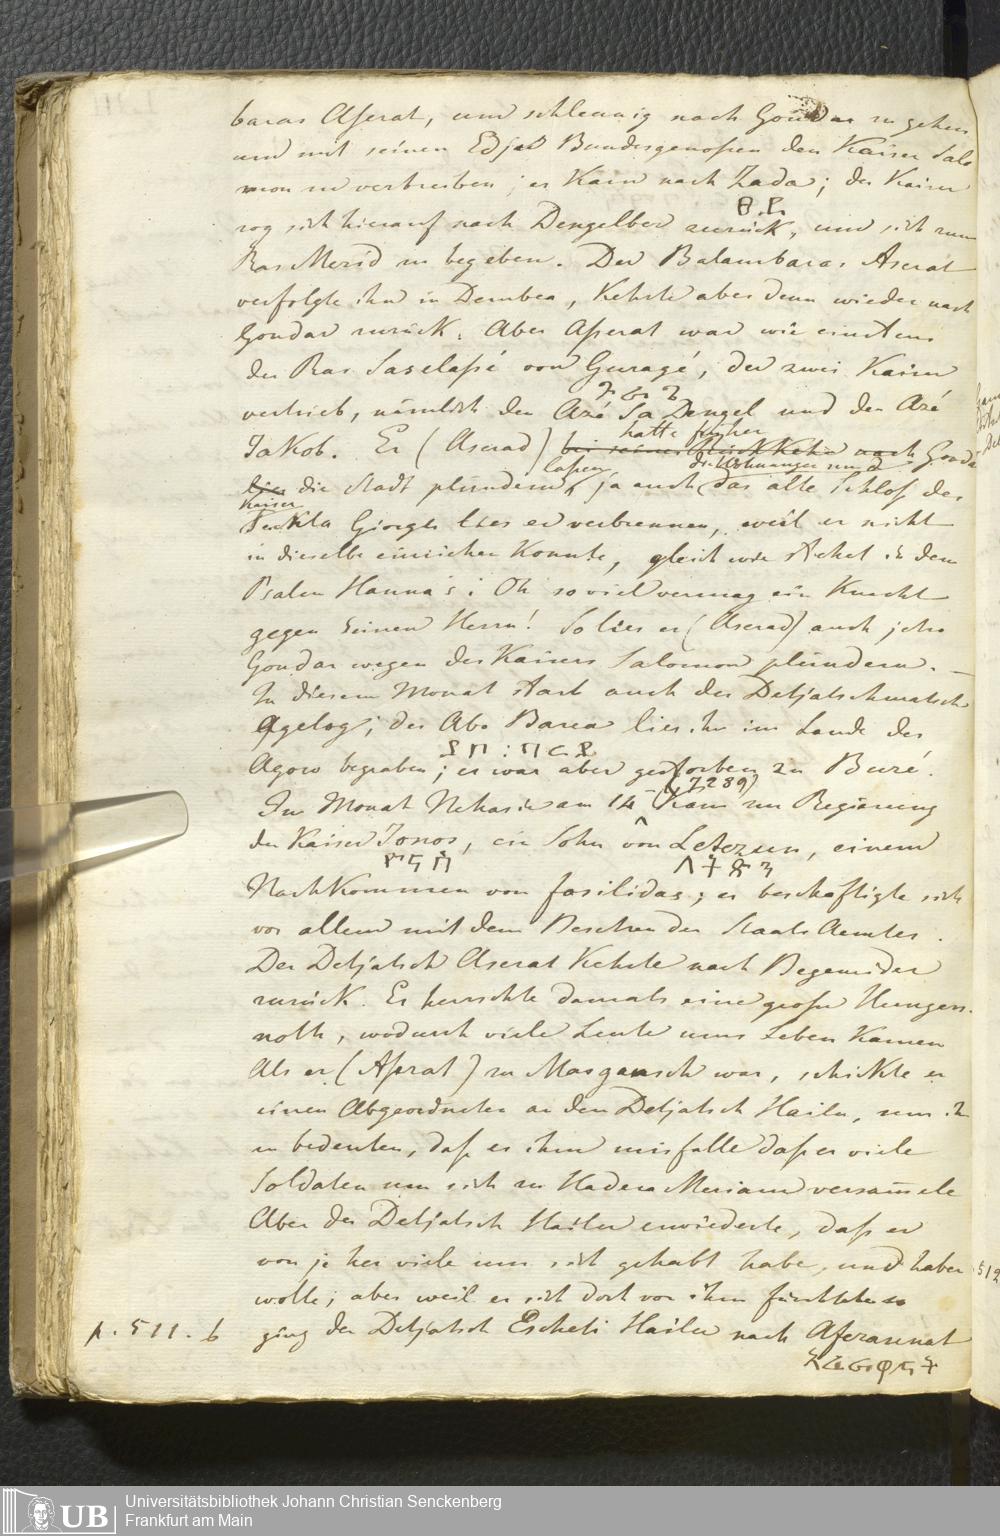 baras Aserat, und schleunig nach Goudar zu gehen
und mit seinen Edjed Bundesgenossen den Kaiser Salo
mon zu vertreiben; er kam nach Zada; der Kaiser
zog sich hierauf nach Dengelber zurück, und sich zum
Ras Meríd zu begeben. Der Balambaras Aserat
verfolgte ihn in Dembea, kehrte aber dann wieder nach
Gondar zurück. Aber Aserat war wie einstens
der Ras Saselassé von Guragé, der zwei Kaiser
vertrieb, nämlich den Azé Sa Dengel und den Azé
Jakob. Er (Aserad) hatte früher bei seiner Rückkehr nach Gonda
lies die Stadt plündern lassen, ja auch die Wohnungen und das alte Schloß des
Kaiser Tekla Giorgis lies er verbrennen, weil er nicht
in dieselbe einziehen konnte, gleich wie stehet in dem
Psalm Hanna's: Oh so viel vermag ein Knecht
gegen seinen Herrn! So lies er (Aserad) auch jetzo
Gondar wegen des Kaisers Salomon plündern. —
In diesem Monat starb auch der Detjatschmatsch
Agelog; der Abo Barea lies ihn im Lande der
Agow begraben; er war aber gestorben zu Buré.
Im Monat Nehasie am 14 – (7289) kam zur Regierung
der Kaiser Jonos, ein Sohn von Letezum, einem
Nachkommen von Fasilidas; er beschäftigte sich
vor allem mit dem Besetzen der Staats Aemter.
Der Detjatsch Aserat kehrte nach Begemider
zurück. Es herrschte damals eine große Hungers-
noth, wodurch viele Leute ums Leben kamen
Als er (Aserat) zu Masgansch war, schickte er
einen Abgeordneten an den Detjatsch Hailu, um ihm
zu bedeuten, daß es ihm misfalle daß er viele
Soldaten um sich zu Hadera Meriam versam̄ele
Aber der Detjatsch Hailu erwiederte, daß er
von je her viele um sich gehabt habe, und haben
wolle; aber weil er sich doch vor ihm fürchtete so
p. 511. b ging der Detjatsch Escheti Hailu nach Aferaunat
512
Universitätsbibliothek Johann Christian Senckenberg
Frankfurt am Main
UB